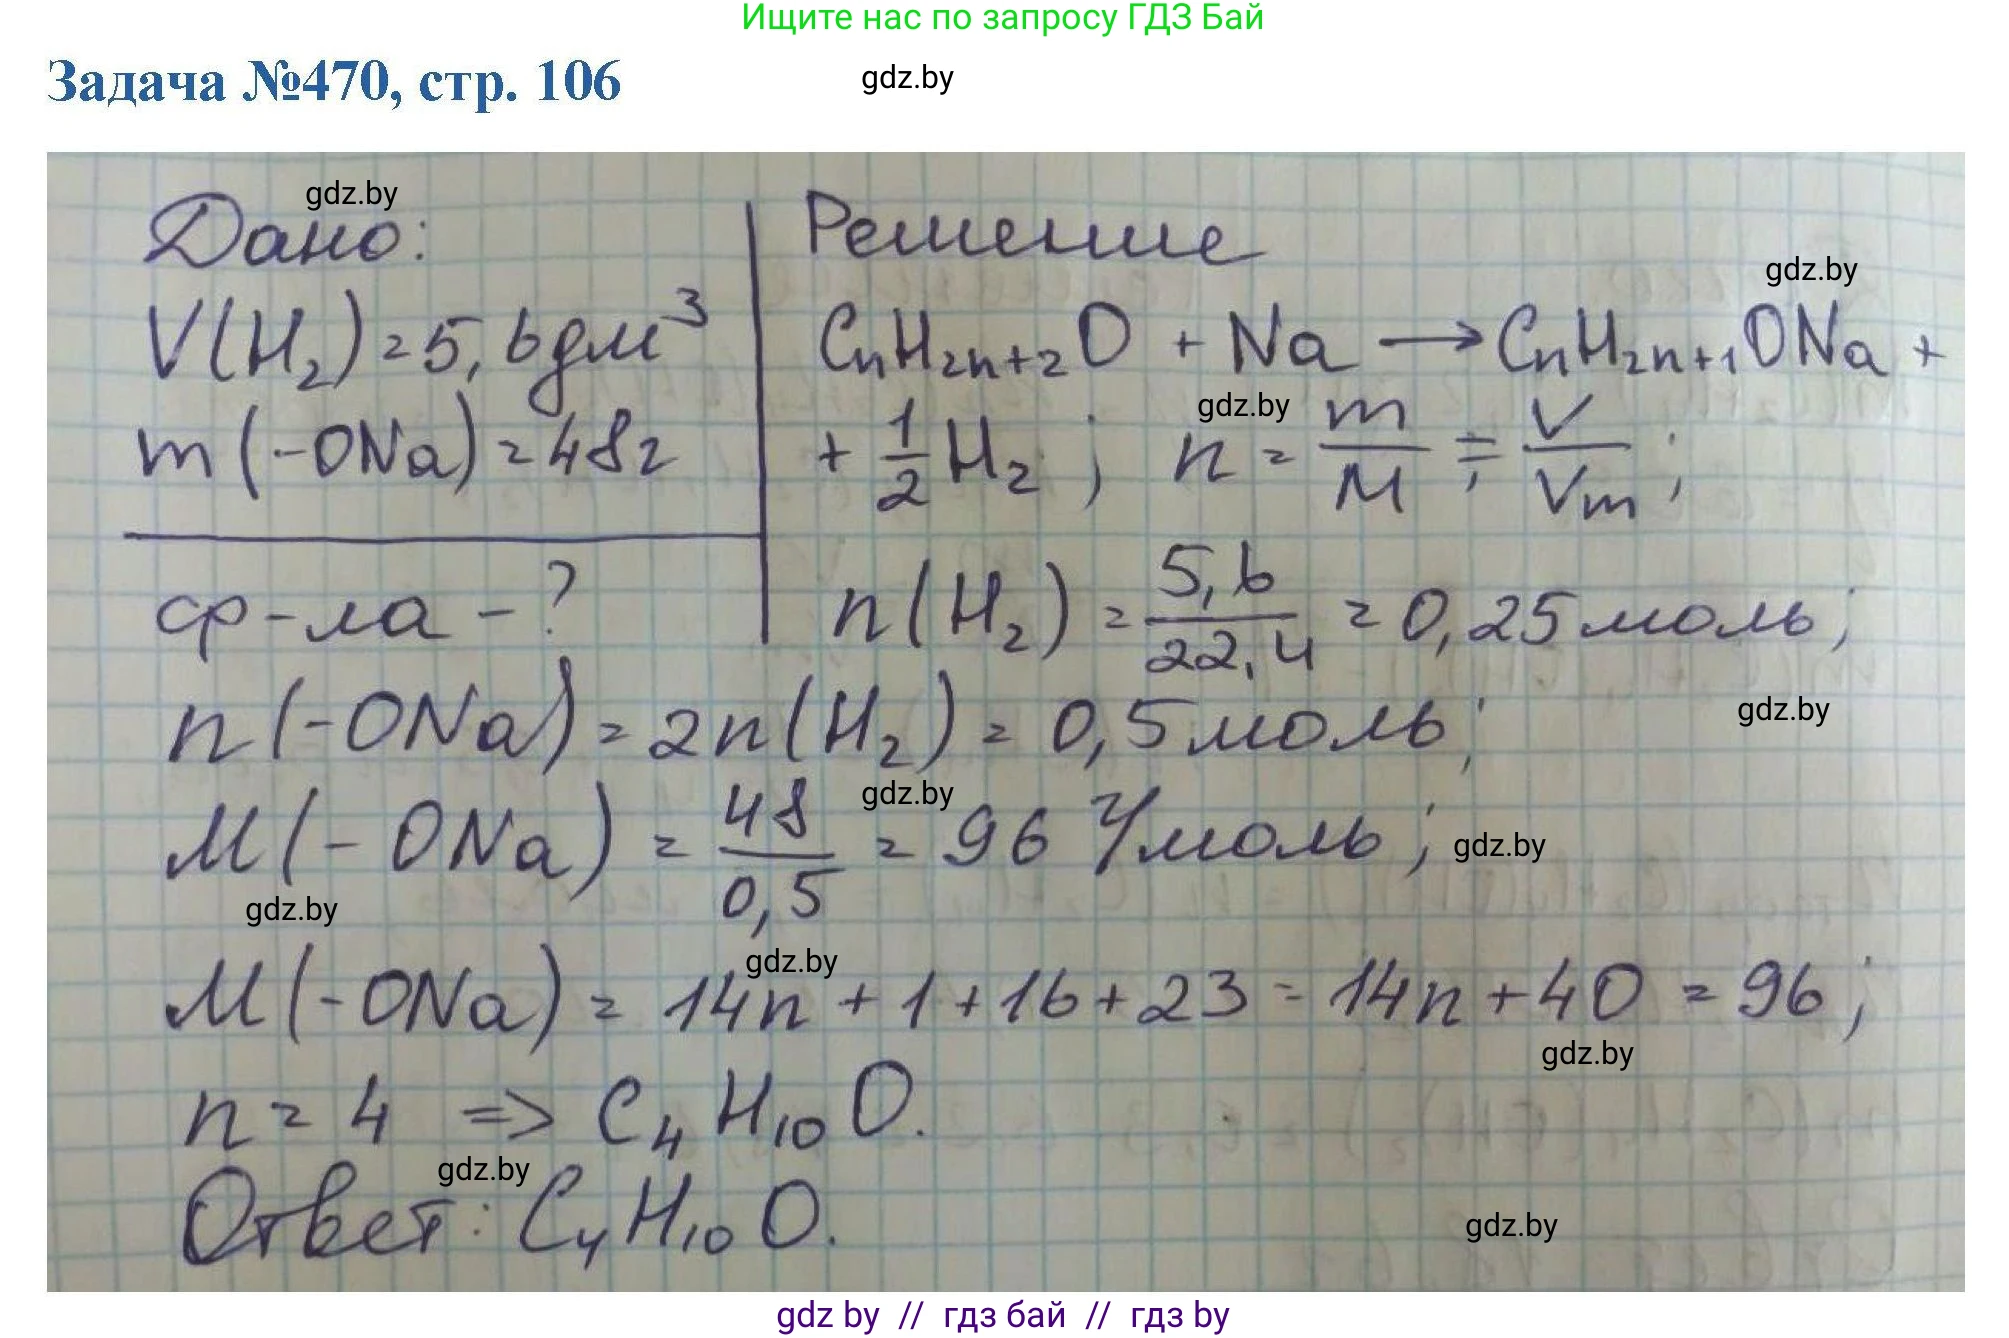 Ищите нас по запросу ГДЗ Бай
Задача №470, стр. 106
gdz.by
gdz.by
Дано:
Решение
gdz.by
V(H₂)=5,6дм³
CₙH₂ₙ₊₂O + Na → CₙH₂ₙ₊₁ONa +
gdz.by
m(-ONa)=48г
+ 1/2 H₂; n = m/M; = V/Vm;
ср-ла - ?
n(H₂) = 5,6/22,4 = 0,25моль;
n(-ONa) = 2n(H₂) = 0,5моль;
gdz.by
gdz.by
M(-ONa) = 48/0,5 = 96 г/моль;
gdz.by
gdz.by
gdz.by
M(-ONa) = 14n + 1 + 16 + 23 = 14n + 40 = 96;
gdz.by
n = 4 => C₄H₁₀O.
gdz.by
Ответ: C₄H₁₀O.
gdz.by
gdz by // гдз бай // гдз by